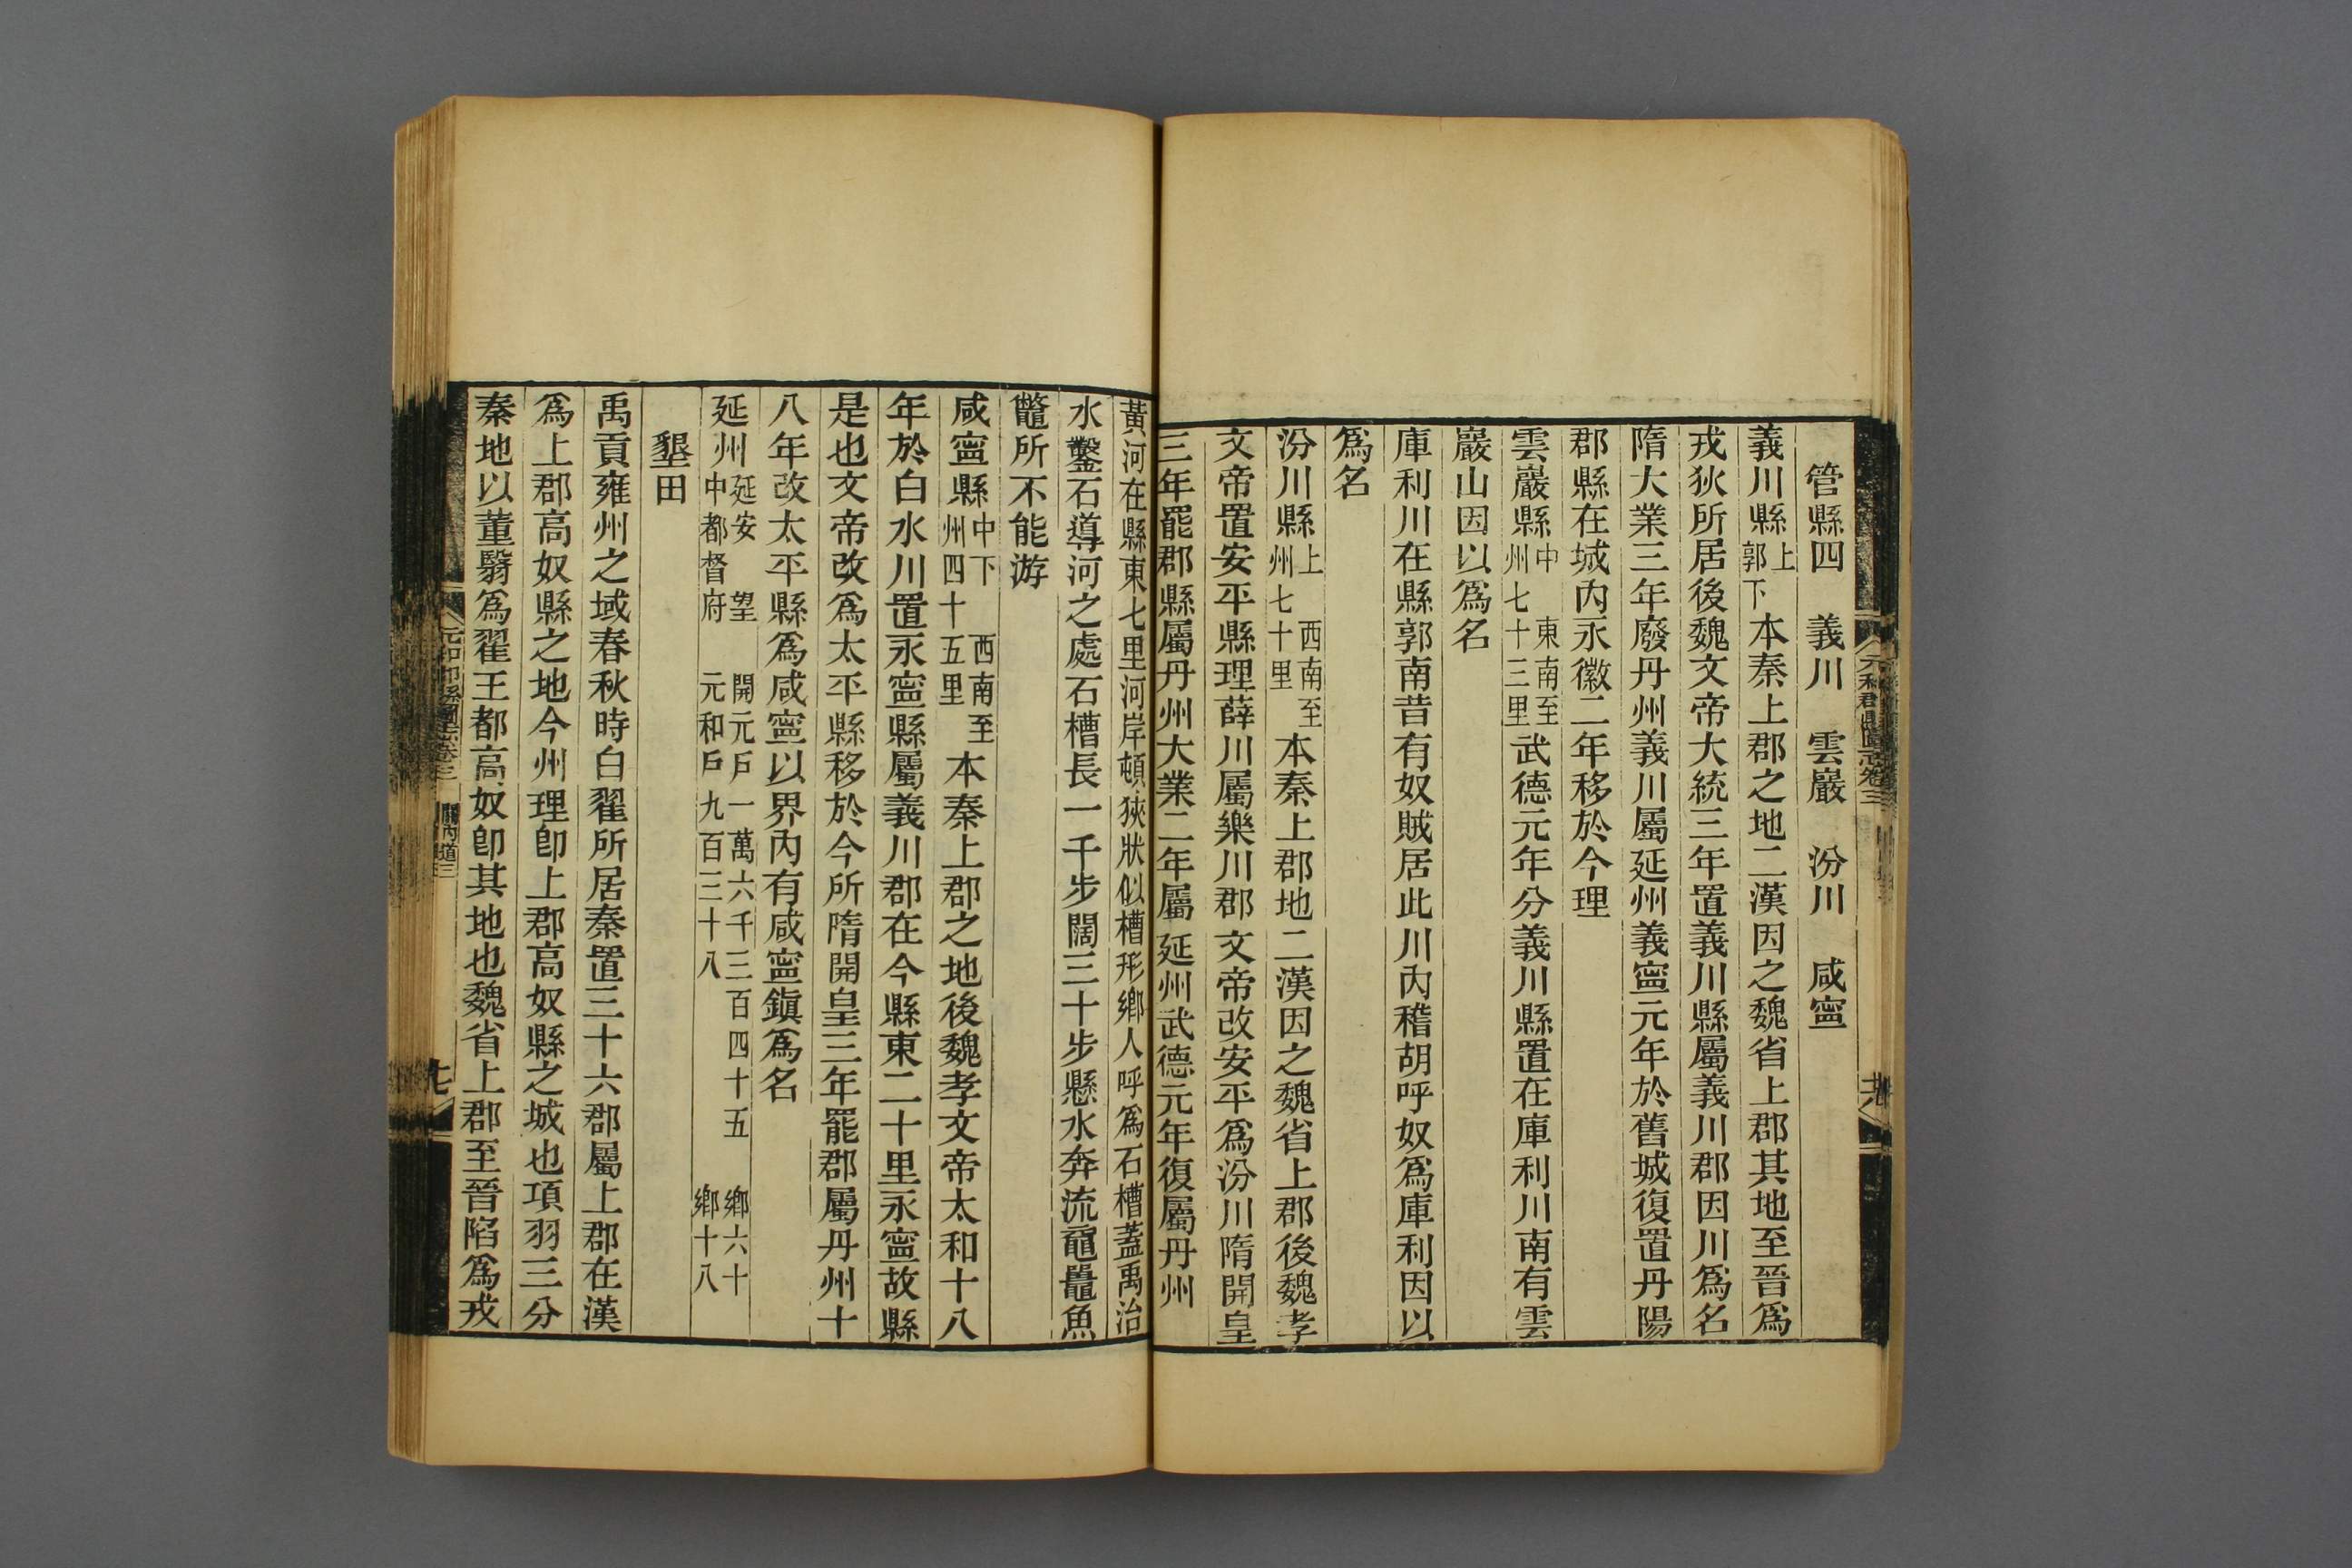 管縣四　義川　雲巖　汾川　咸寧
義川縣上郭下本秦上郡之地二漢因之魏省上郡其地至晉爲
戎狄所居後魏文帝大統三年置義川縣屬義川郡因川爲名
隋大業三年廢丹州義川屬延州義寧元年於舊城復置丹陽
郡縣在城內永徽二年移於今理
雲巖縣中東南至州七十三里武德元年分義川縣置在庫利川南有雲
巖山因以爲名
庫利川在縣郭南昔有奴賊居此川內稽胡呼奴爲庫利因以
爲名
汾川縣上西南至州七十里本秦上郡地二漢因之魏省上郡後魏孝
文帝置安平縣理薛川屬樂川郡文帝改安平爲汾川隋開皇
三年罷郡縣屬丹州大業二年屬延州武德元年復屬丹州
黃河在縣東七里河岸頓狹狀似槽形鄉人呼爲石槽蓋禹治
水鑿石導河之處石槽長一千步闊三十步懸水奔流黿鼉魚
鼈所不能游
咸寧縣中下西南至州四十五里本秦上郡之地後魏孝文帝太和十八
年於白水川置永寧縣屬義川郡在今縣東二十里永寧故縣
是也文帝改爲太平縣移於今所隋開皇三年罷郡屬丹州十
八年改太平縣爲咸寧以界內有咸寧鎮爲名
延州延安　望　開元戶一萬六千三百四十五　鄉六十
中都督府　元和戶九百三十八　鄉十八
墾田
禹貢雍州之域春秋時白翟所居秦置三十六郡屬上郡在漢
爲上郡高奴縣之地今州理卽上郡高奴縣之城也項羽三分
秦地以董翳爲翟王都高奴卽其地也魏省上郡至晉陷爲戎